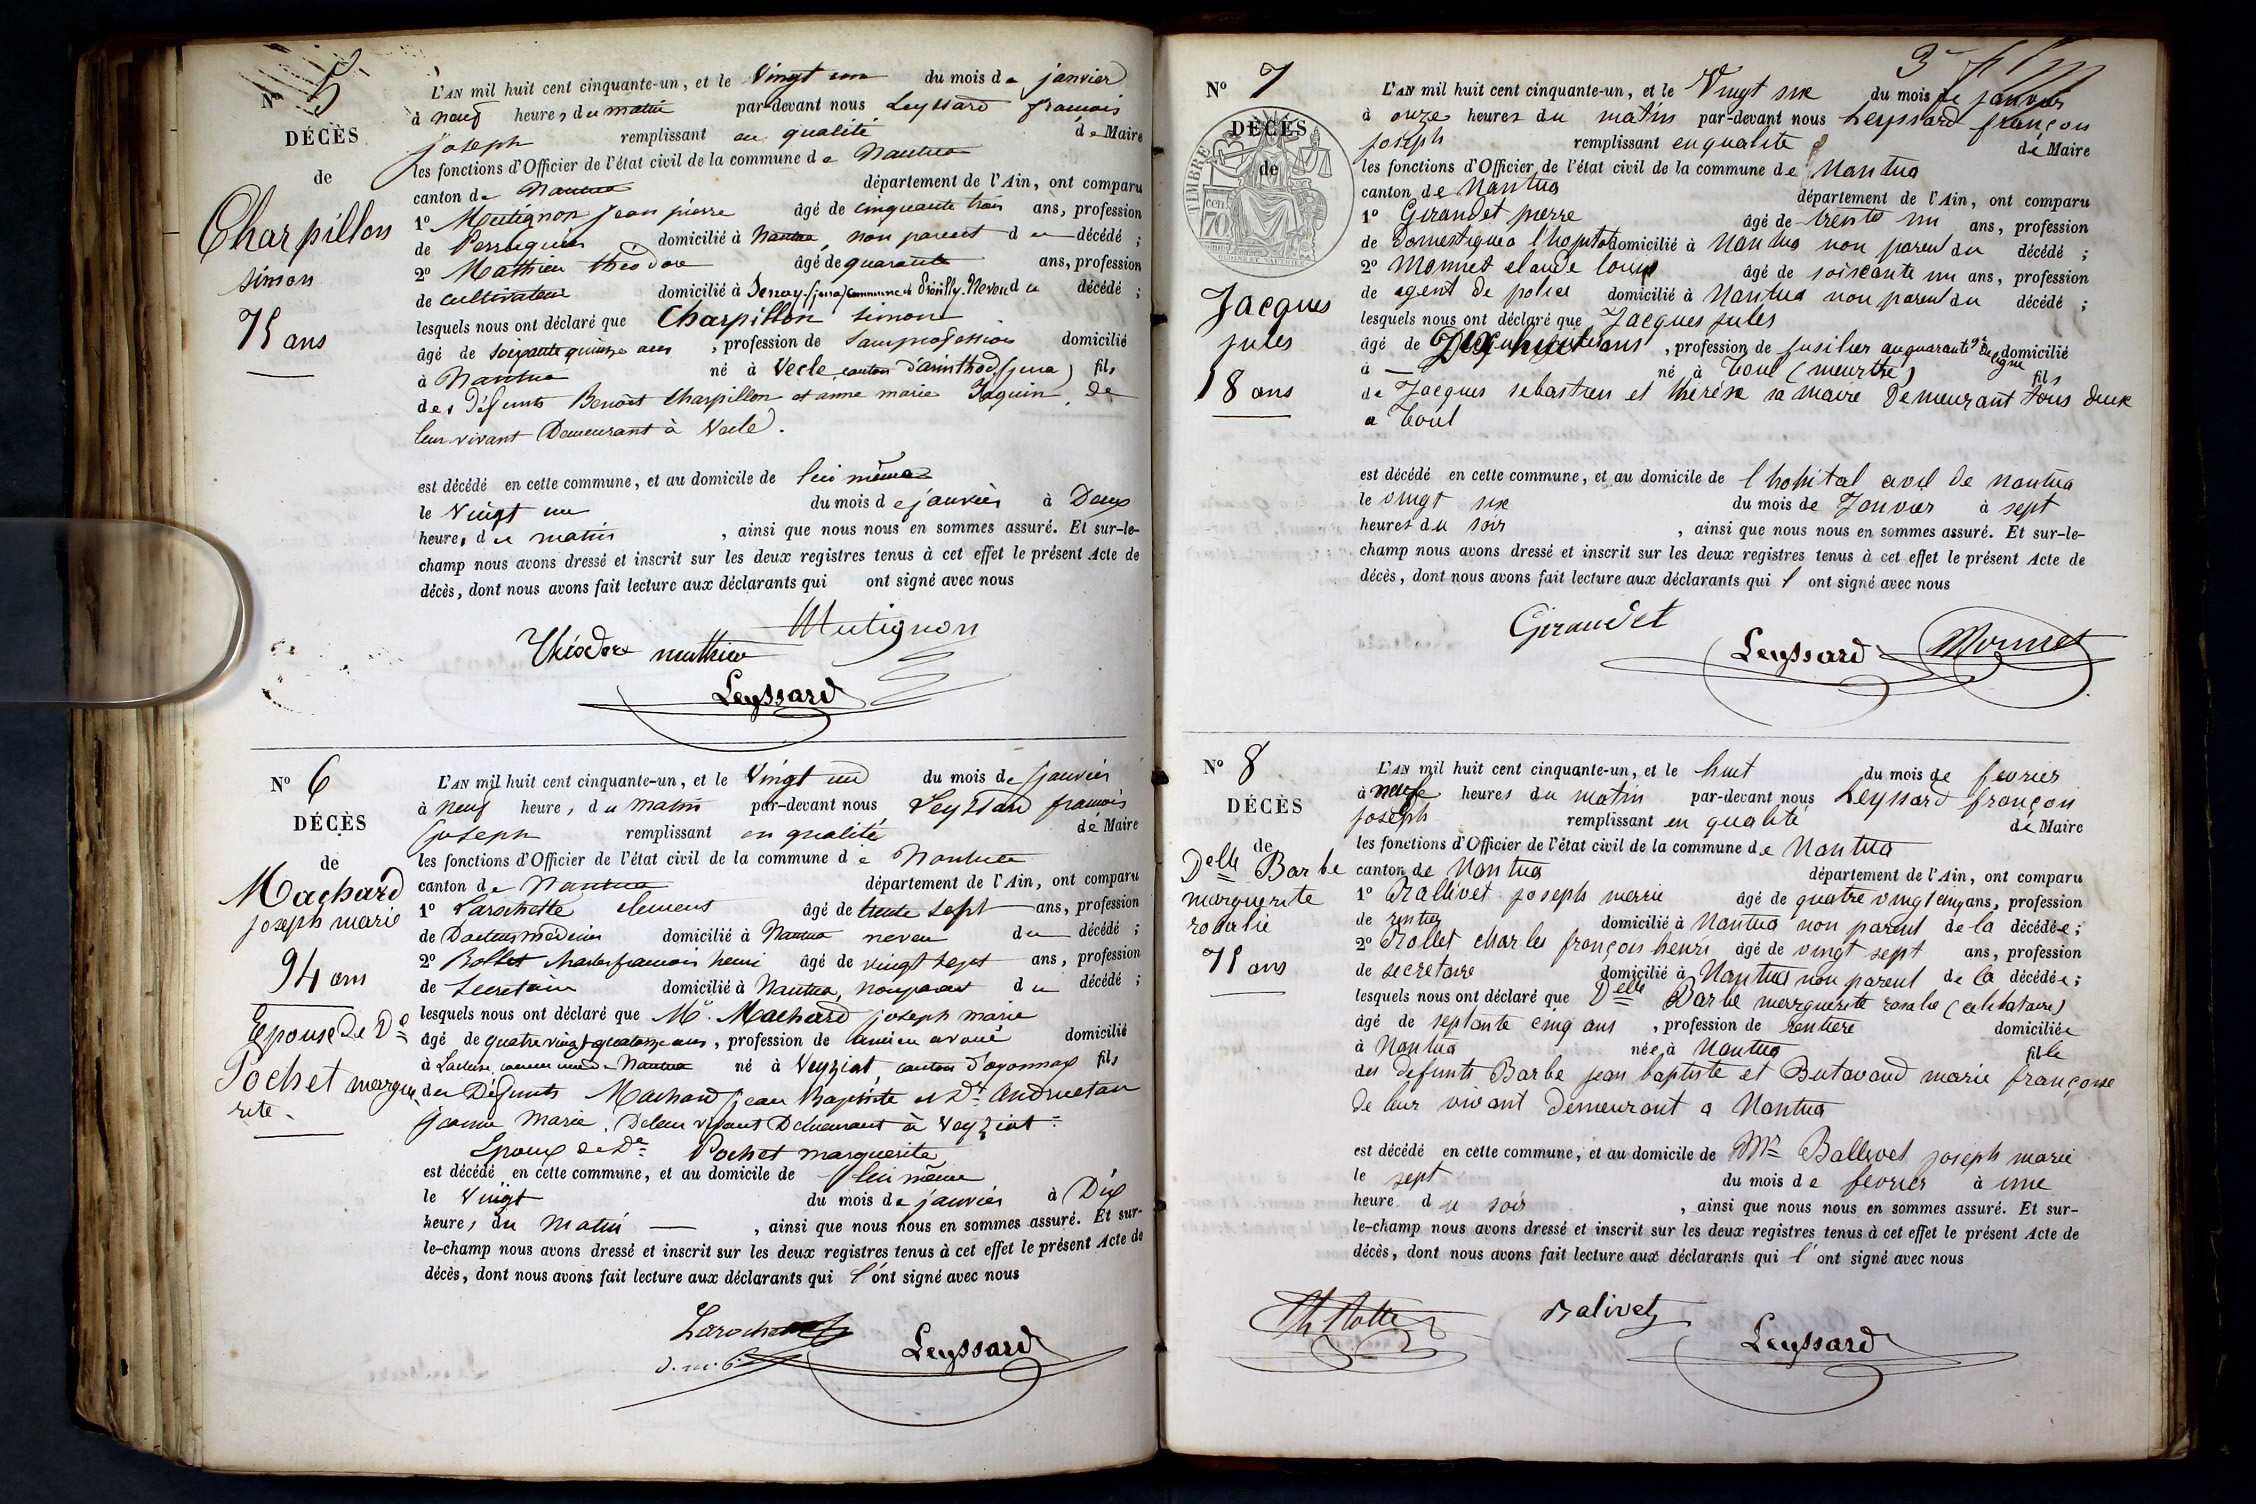 N° 5
DÉCÈS
de
Charpillon
simon
75 ans
L'AN mil huit cent cinquante-un, et le Vingt un du mois de janvier
à neuf heures du matin par-devant nous Leyssard françois
joseph remplissant en qualité de Maire
les fonctions d'Officier de l'état civil de la commune de Nantua
canton de Nantua département de l'Ain, ont comparu
1° Mutignon jean pierre âgé de cinquante trois ans, profession
de Perruquier domicilié à Nantua, non parent du décédé ;
2° Mathieu théodore âgé de quarante ans, profession
de cultivateur domicilié à (jura) commune de Neveu du décédé ;
lesquels nous ont déclaré que Charpillon simon
âgé de soixante quinze ans, profession de sans profession domicilié
à Nantua né à Vecle, canton d'arinthod (jura) fils
des défunts Benoit Charpillon et anne marie Jaquin, de
leur vivant Demeurant à Vecle.
est décédé en cette commune, et au domicile de lui même
le Vingt un du mois de janvier à Deux
heures du matin, ainsi que nous nous en sommes assuré. Et sur-le-
champ nous avons dressé et inscrit sur les deux registres tenus à cet effet le présent Acte de
décès, dont nous avons fait lecture aux déclarants qui ont signé avec nous
Mutignon
Théodore mathieu
Leyssard
N° 6
DÉCÈS
de
Machard
joseph marie
94 ans
Epouse de De
Pochet margue
rite
L'AN mil huit cent cinquante-un, et le Vingt un du mois de janvier
à neuf heures du matin par-devant nous Leyssard françois
joseph remplissant en qualité de Maire
les fonctions d'Officier de l'état civil de la commune de Nantua
canton de Nantua département de l'Ain, ont comparu
1° Larochette clément âgé de trente sept ans, profession
de Docteur médecin domicilié à Nantua neveu du décédé ;
2° Rollet charles francois henri âgé de vingt sept ans, profession
de secretaire domicilié à Nantua, non parent du décédé ;
lesquels nous ont déclaré que Mr. Machard joseph marie
âgé de quatre vingt quatorze ans, profession de ancien avoué domicilié
à commune de Nantua né à Veyziat, canton d'oyonnax fils
des Défunts Machard jean Baptiste et De Andruetan
jeanne Marie, De leur vivant Demeurant à Veyziat.
Epoux de De Pochet marguerite
est décédé en cette commune, et au domicile de lui même
le Vingt du mois de janvier à Dix
heures du matin — , ainsi que nous nous en sommes assuré. Et sur-
le-champ nous avons dressé et inscrit sur les deux registres tenus à cet effet le présent Acte de
décès, dont nous avons fait lecture aux déclarants qui l'ont signé avec nous
Larochette
d. m. p.
Leyssard
3
N° 7
DÉCÈS
de
TIMBRE
70 cen.
Jacques
jules
18 ans
L'AN mil huit cent cinquante-un, et le Vingt six du mois de janvier
à onze heures du matin par-devant nous Leyssard françois
joseph remplissant en qualité de Maire
les fonctions d'Officier de l'état civil de la commune de Nantua
canton de Nantua département de l'Ain, ont comparu
1° Giraudet pierre âgé de trente un ans, profession
de domestique a l'hopital domicilié à Nantua non parent du décédé ;
2° Monnet claude louis âgé de soixante un ans, profession
de agent de police domicilié à Nantua non parent du décédé ;
lesquels nous ont déclaré que Jacques jules
âgé de Dix huit ans, profession de fusilier au quarante de ligne domicilié
à — né à Toul (meurthe) fils
de Jacques sebastien et thérése sa maire Demeurant tous deux
a Toul
est décédé en cette commune, et au domicile de l'hopital civil de nantua
le vingt six du mois de Janvier à sept
heures du soir, ainsi que nous nous en sommes assuré. Et sur-le-
champ nous avons dressé et inscrit sur les deux registres tenus à cet effet le présent Acte de
décès, dont nous avons fait lecture aux déclarants qui l'ont signé avec nous
Giraudet
Leyssard
Monnet
N° 8
DÉCÈS
de
Delle Barbe
marguerite
rosalie
75 ans
L'AN mil huit cent cinquante-un, et le huit du mois de fevrier
à neufe heures du matin par-devant nous Leyssard françois
joseph remplissant en qualité de Maire
les fonctions d'Officier de l'état civil de la commune de Nantua
canton de Nantua département de l'Ain, ont comparu
1° Ballivet joseph marie âgé de quatre vingt cinq ans, profession
de rentier domicilié à Nantua non parent de la décédée ;
2° Rollet charles françois henri âgé de vingt sept ans, profession
de secretaire domicilié à Nantua non parent de la décédée ;
lesquels nous ont déclaré que Delle Barbe marguerite rosalie (celibataire)
âgé de septante cinq ans, profession de rentiere domiciliée
à Nantua née à Nantua fille
des defunts Barbe jean baptiste et Butavand marie françoise
de leur vivant demeurant a Nantua
est décédé en cette commune, et au domicile de Mr Ballivet joseph marie
le sept du mois de fevrier à une
heure du soir, ainsi que nous nous en sommes assuré. Et sur-
le-champ nous avons dressé et inscrit sur les deux registres tenus à cet effet le présent Acte de
décès, dont nous avons fait lecture aux déclarants qui l'ont signé avec nous
Balivet
Leyssard